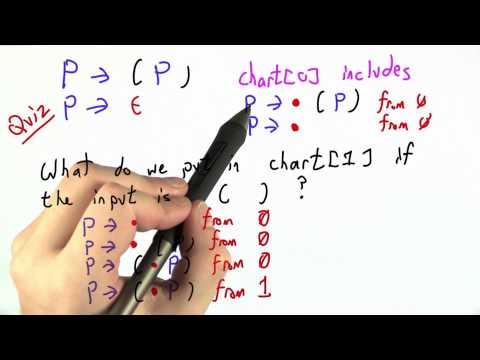 P → ( P )
P → ε
Quiz
chart[0] includes
P → • ( P ) from 0
P → • from 0
What do we put in chart[1] if
the input is ( ) ?
P → • from 0
P → • ( P ) from 0
P → ( • P ) from 0
P → ( • P ) from 1